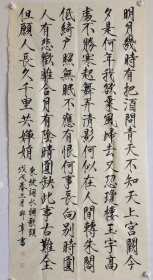 明月幾時有把酒問青天不知天上宮闕今
夕是何年我欲乘風歸去又恐瓊樓玉宇高
處不勝寒起舞弄清影何似在人間轉朱閣
低綺户照無眠不應有恨何事長向别時圓
人有悲歡離合月有陰晴圓缺此事古難全
但願人長久千里共嬋娟
東坡詞水調歌頭
戊戌春三月
書